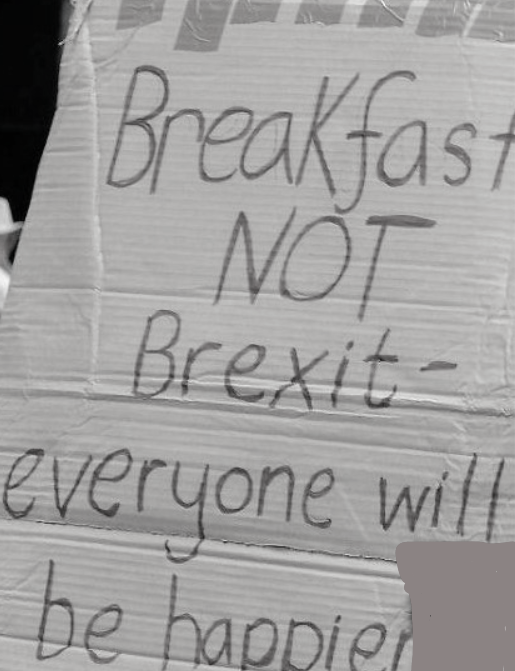 Breakfast
NOT
Brexit-
everyone will
be happier